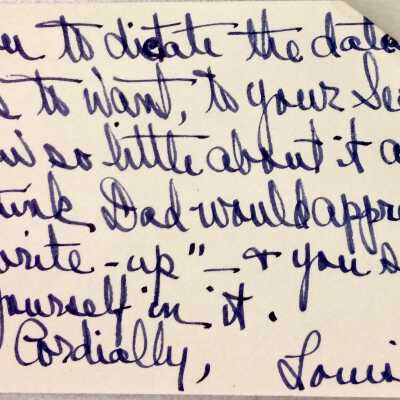 to dictate the data
to want, to your Se
so little about it a
Dad would appre
write-up" - & you s
yourself in it.
Cordially, Louis